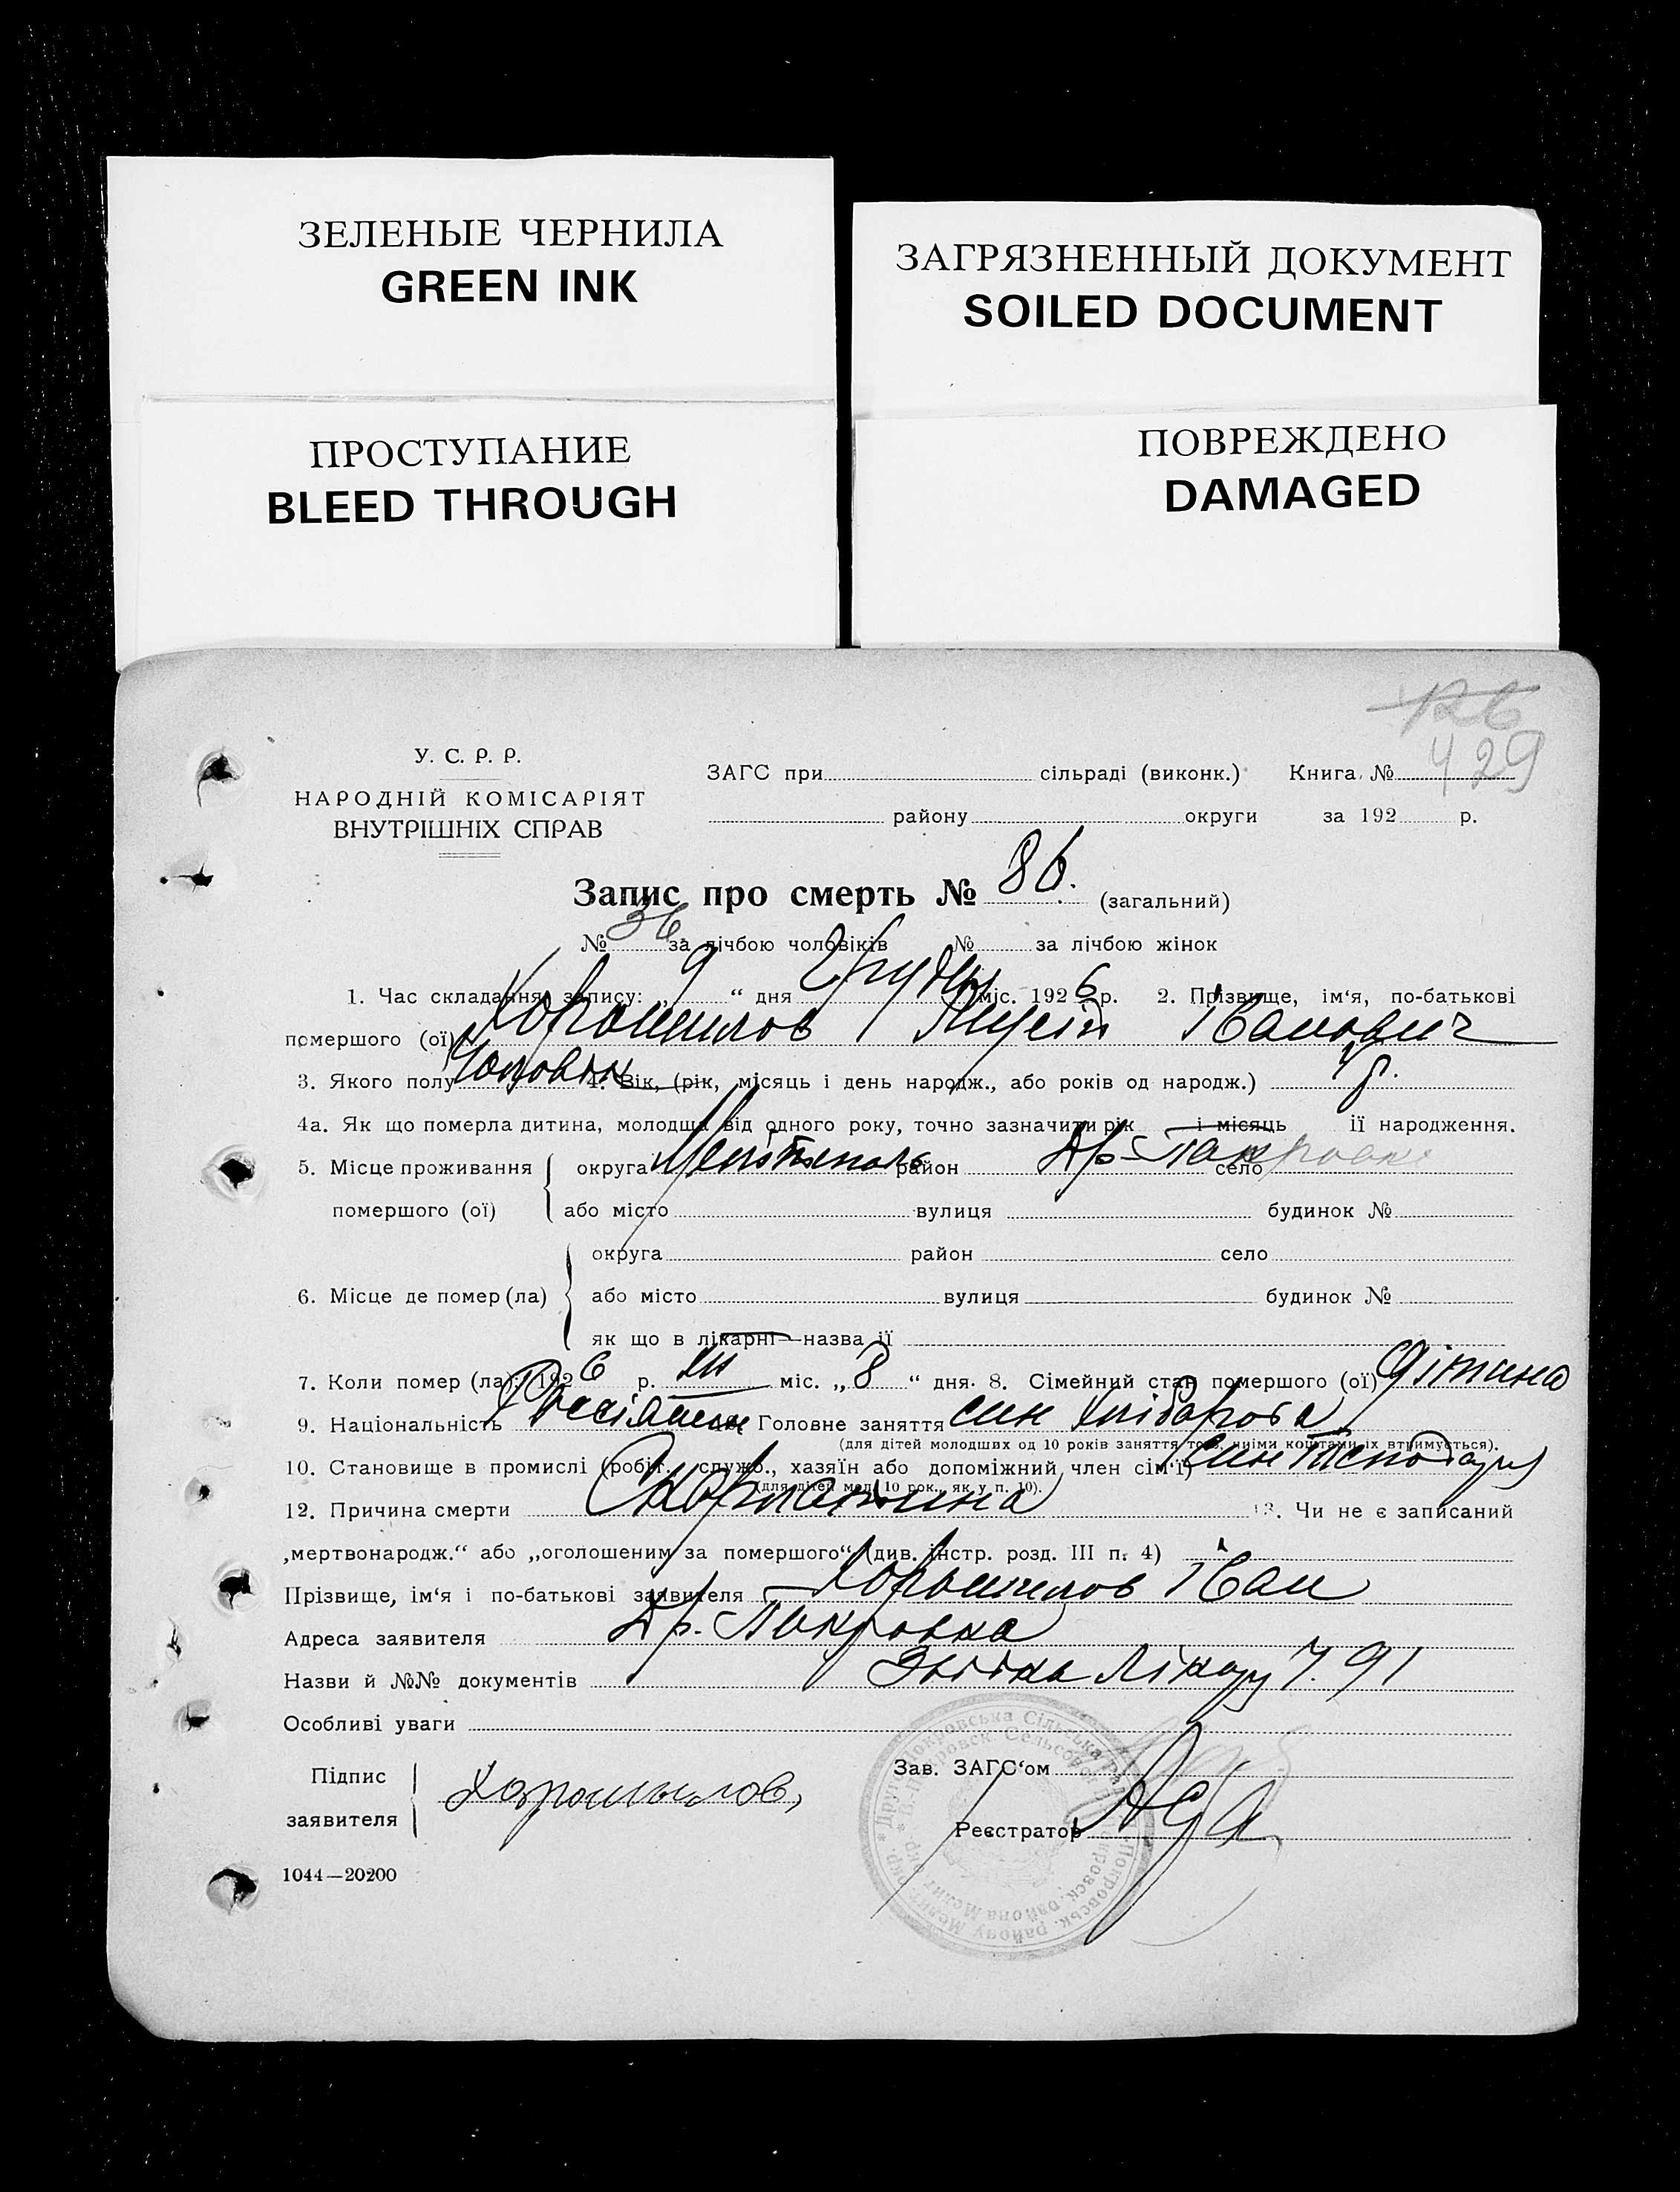 ЗЕЛЕНЫЕ ЧЕРНИЛА
GREEN INK
ЗАГРЯЗНЕННЫЙ ДОКУМЕНТ
SOILED DOCUMENT
ПРОСТУПАНИЕ
BLEED THROUGH
ПОВРЕЖДЕНО
DAMAGED
126
429
У. С. Р. Р.
НАРОДНІЙ КОМІСАРІЯТ
ВНУТРІШНІХ СПРАВ
ЗАГС при сільраді (виконк.) Книга №
району округи за 192 р.
Запис про смерть № 86. (загальний)
№ 36 за лічбою чоловіків № за лічбою жінок
1. Час складання запису: „ 9 “ дня Грудня міс. 192 6 р. 2. Прізвище, ім'я, по-батькові
помершого (ої) Хорошилов Іванович
3. Якого полу Чоловік 4. Вік, (рік, місяць і день народж., або років од народж.)
4а. Як що померла дитина, молодша від одного року, точно зазначити рік і місяць її народження.
5. Місце проживання округа район Др-Покровка село
помершого (ої) або місто вулиця будинок №
округа район село
6. Місце де помер (ла) або місто вулиця будинок №
як що в лікарні—назва її
7. Коли помер (ла): 192 6 р. XII міс. „ 8 “ дня. 8. Сімейний стан помершого (ої) дітина
9. Національність Головне заняття син Хлібороба
(для дітей молодших од 10 років заняття того, чиїми коштами їх втримується).
10. Становище в промислі (робіт., служб., хазяїн або допоміжний член сім'ї) син
(для дітей мол. 10 рок., як у п. 10).
12. Причина смерти Скорлатина 13. Чи не є записаний
„мертвонародж.“ або „оголошеним за помершого“ (див. інстр. розд. III п. 4)
Прізвище, ім'я і по-батькові заявителя Хорошилов Іван
Адреса заявителя Др. Покровка
Назви й №№ документів Лікару 91
Особливі уваги
Підпис
заявителя Хорошилов,
Зав. ЗАГС'ом
Реєстратор
1044—20200